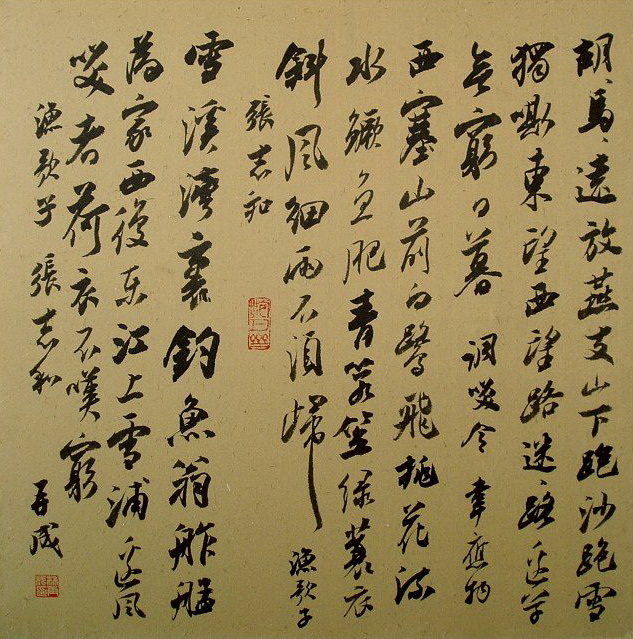 胡、馬、遠放燕支山下跑沙跑雪
獨嘶東望西望路迷、路、邊草
無窮日暮 調笑令 韋應物
西塞山前白鷺飛桃花流
水鱖魚肥青箬笠綠蓑衣
斜風細雨不須歸 漁歌子
張志和
雪溪灣裏釣魚翁舴艋
為家西復東江上雪浦邊風
笑著荷衣不嘆窮
漁歌子 張志和